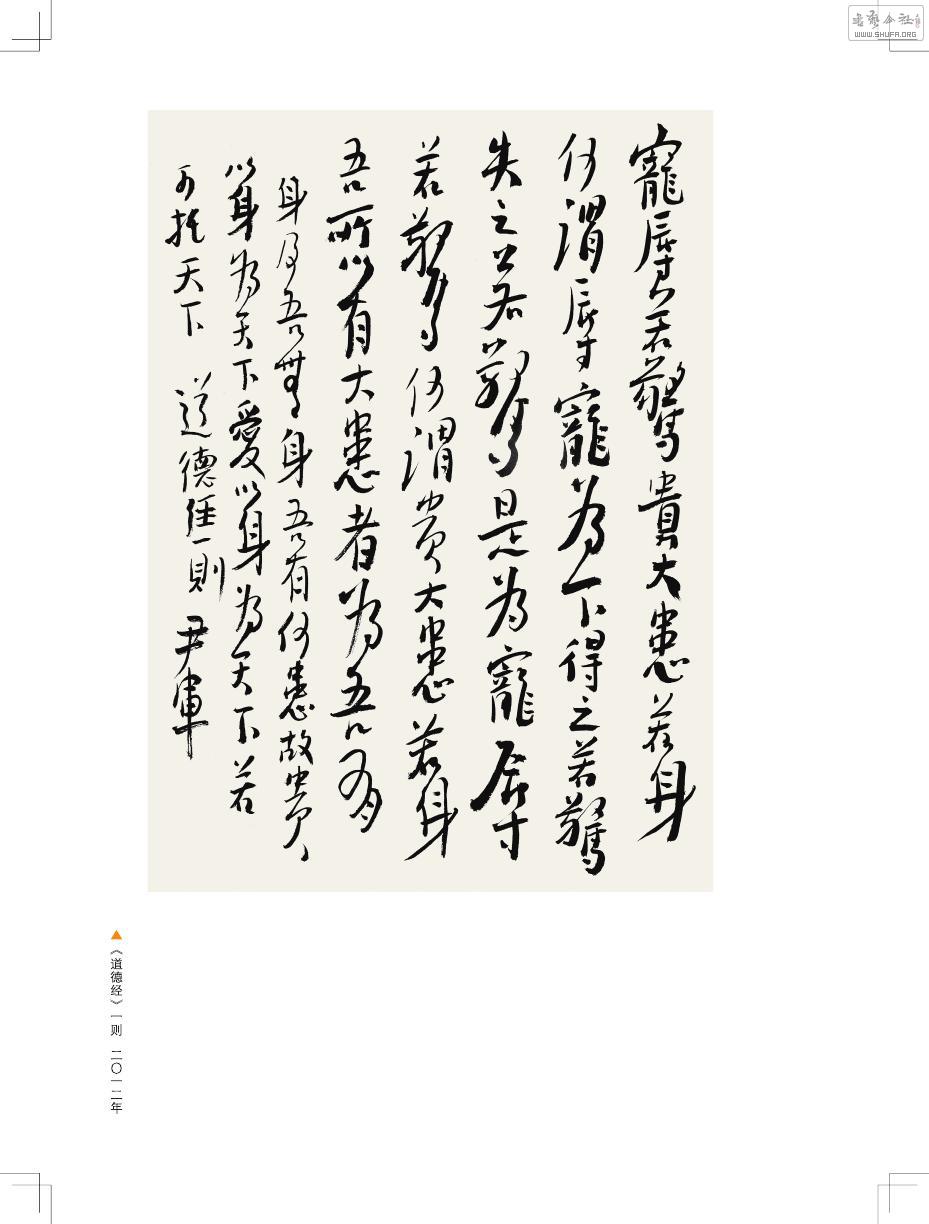 寵辱若驚貴大患若身
何謂辱寵為下得之若驚
失之若驚是為寵辱
若驚何謂貴大患若身
吾所以有大患者為吾有
身及吾無身吾有何患故貴
以身為天下愛以身為天下若
可托天下 道德經一則 尹軍
《道德经》一则 二〇一二年
WWW.SHUFA.ORG